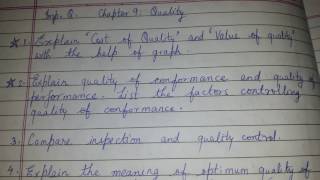 Imp. Q. Chapter 9: Quality
* 1. Explain "Cost of Quality" and "Value of quality"
with the help of graph.
* 2. Explain quality of conformance and quality of
performance. List the factors controlling
quality of conformance.
3. Compare inspection and quality control.
4. Explain the meaning of optimum quality of